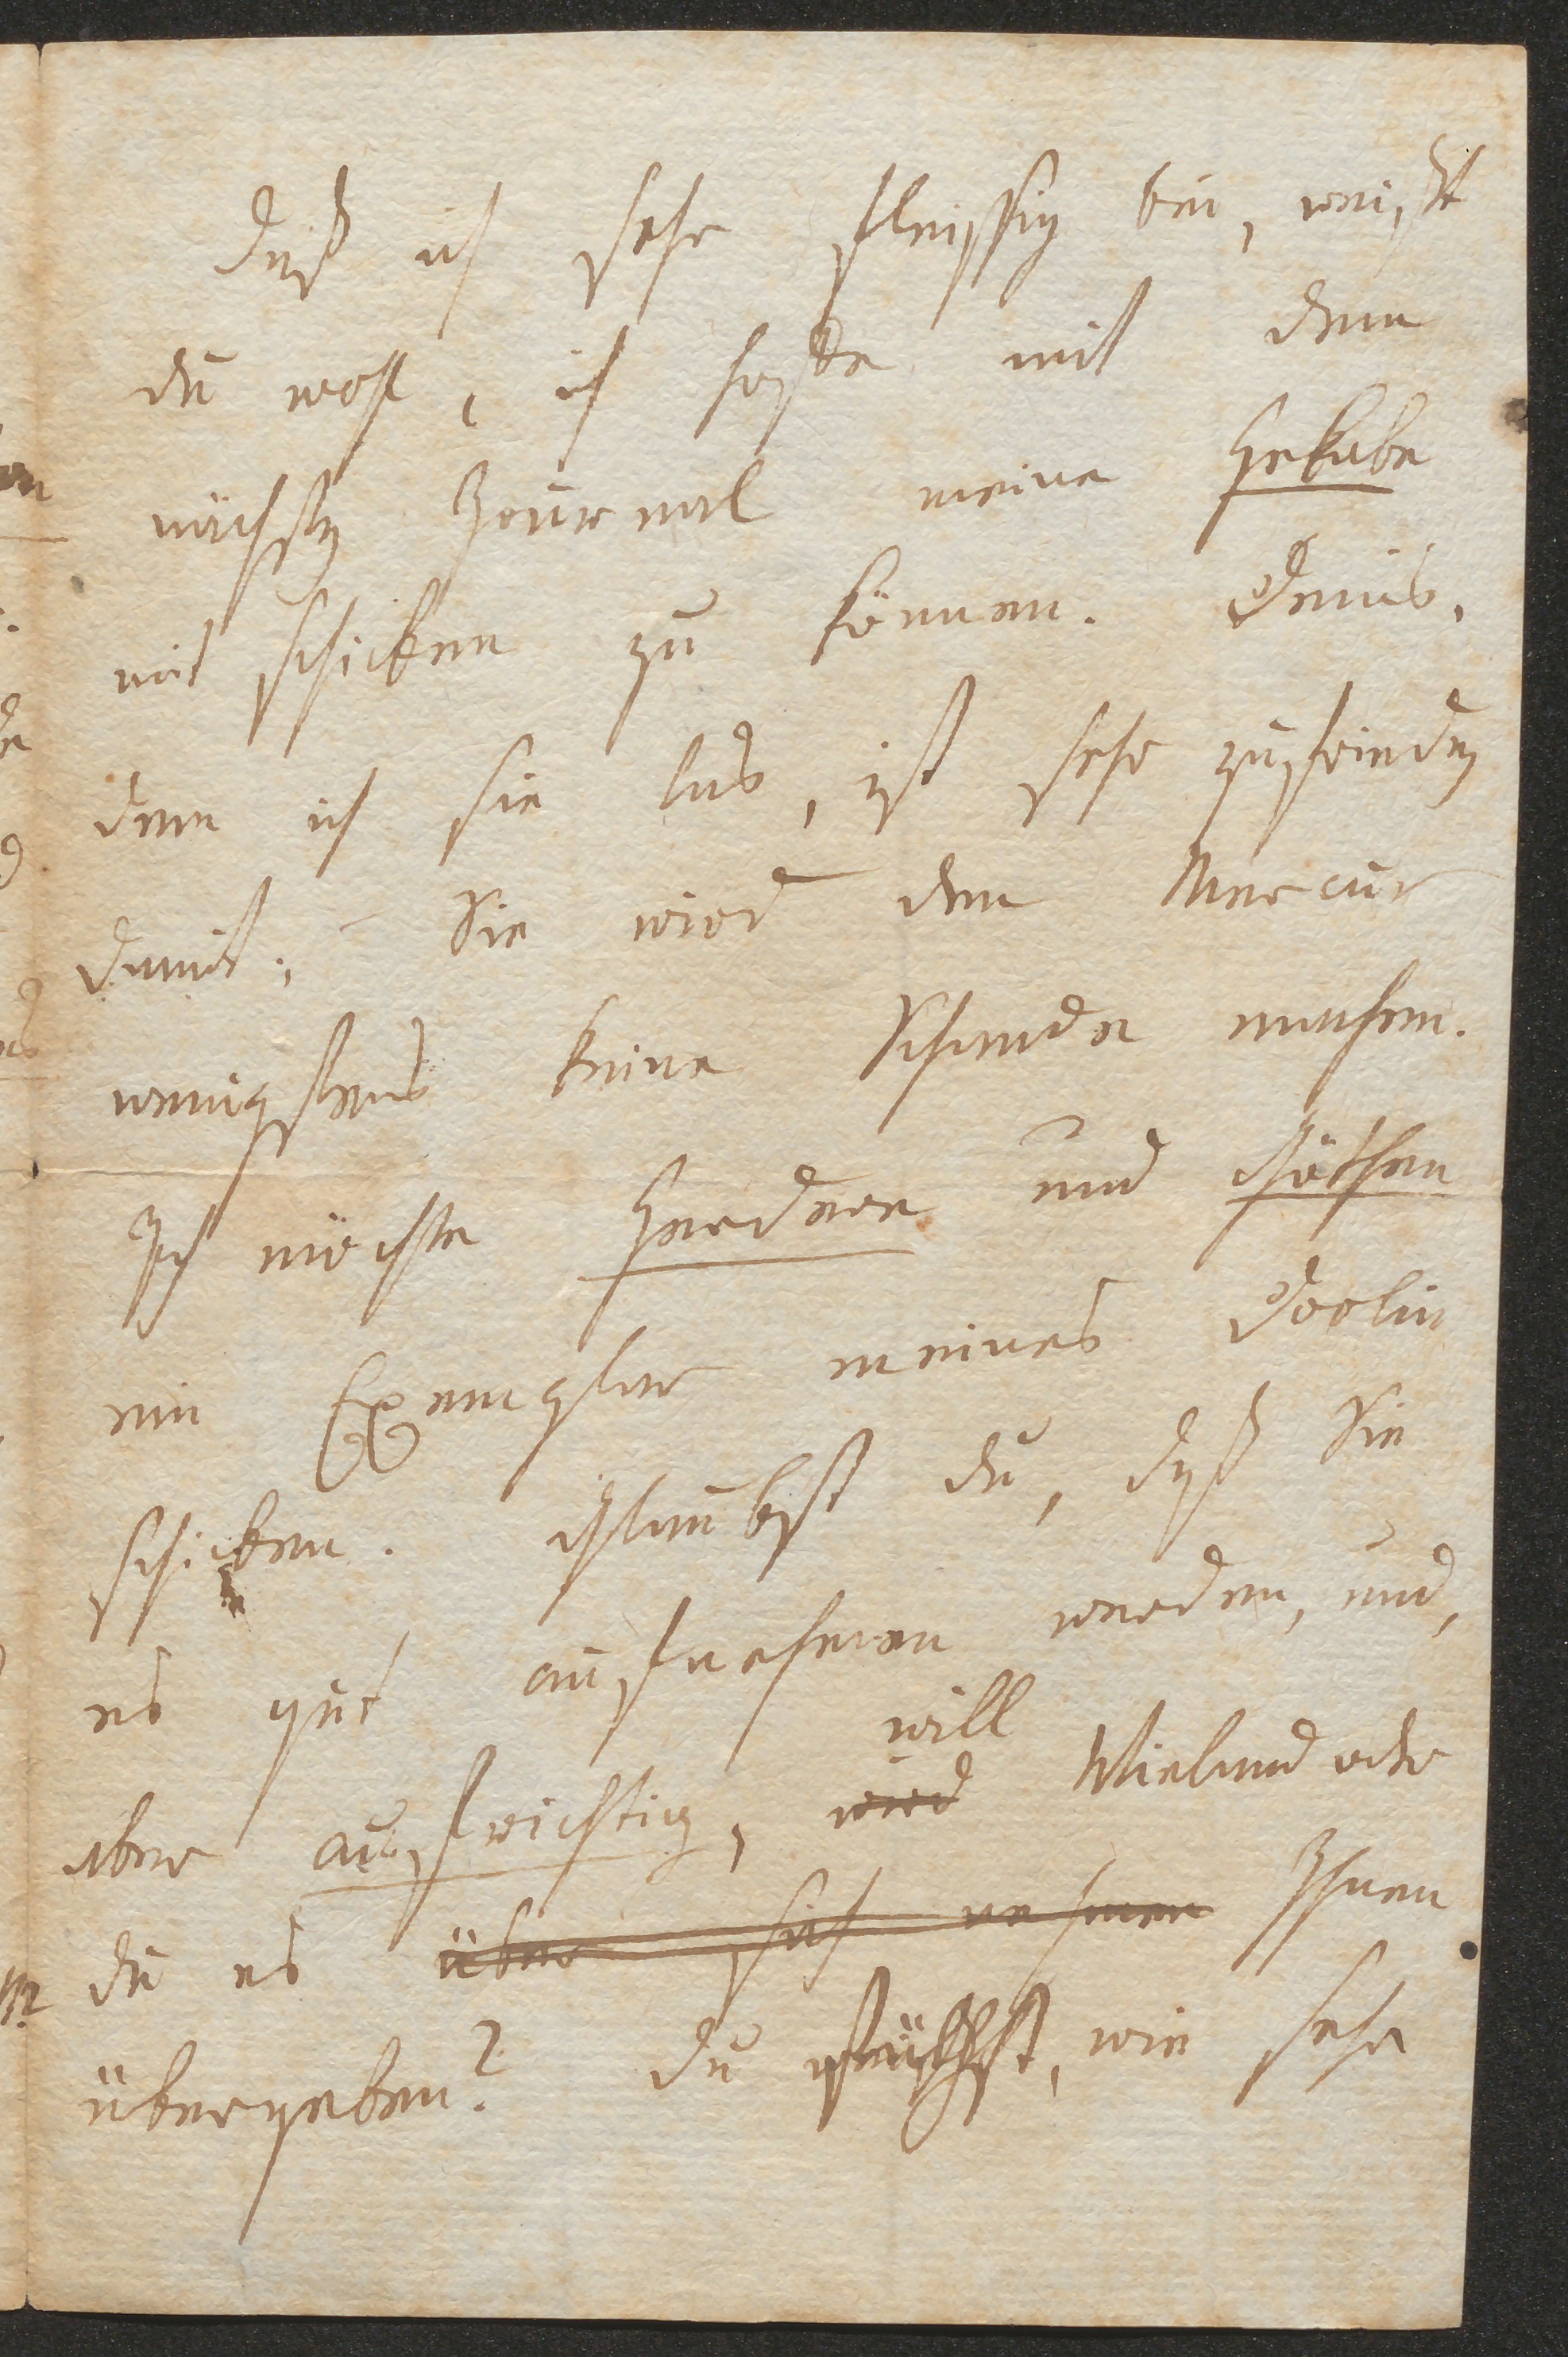 Daß ich sehr fleissig bin, weißt
du wohl, ich hoffe mit dem
nächsten Journal meine Hekabe
mit schicken zu können. Denis,
dem ich sie las, ist sehr zufrieden
damit; Sie wird dem Mercur
wenigstens keine Schande machen.
Ich möchte Herdern und Göthen
ein Exemplar meines Doolin
schicken. Glaubst du, daß Sie
es gut aufnehmen werden, und,
will
aber aufrichtig, wird Wieland oder
du es über sich nehmen Ihnen
übergeben? Du wie sehr